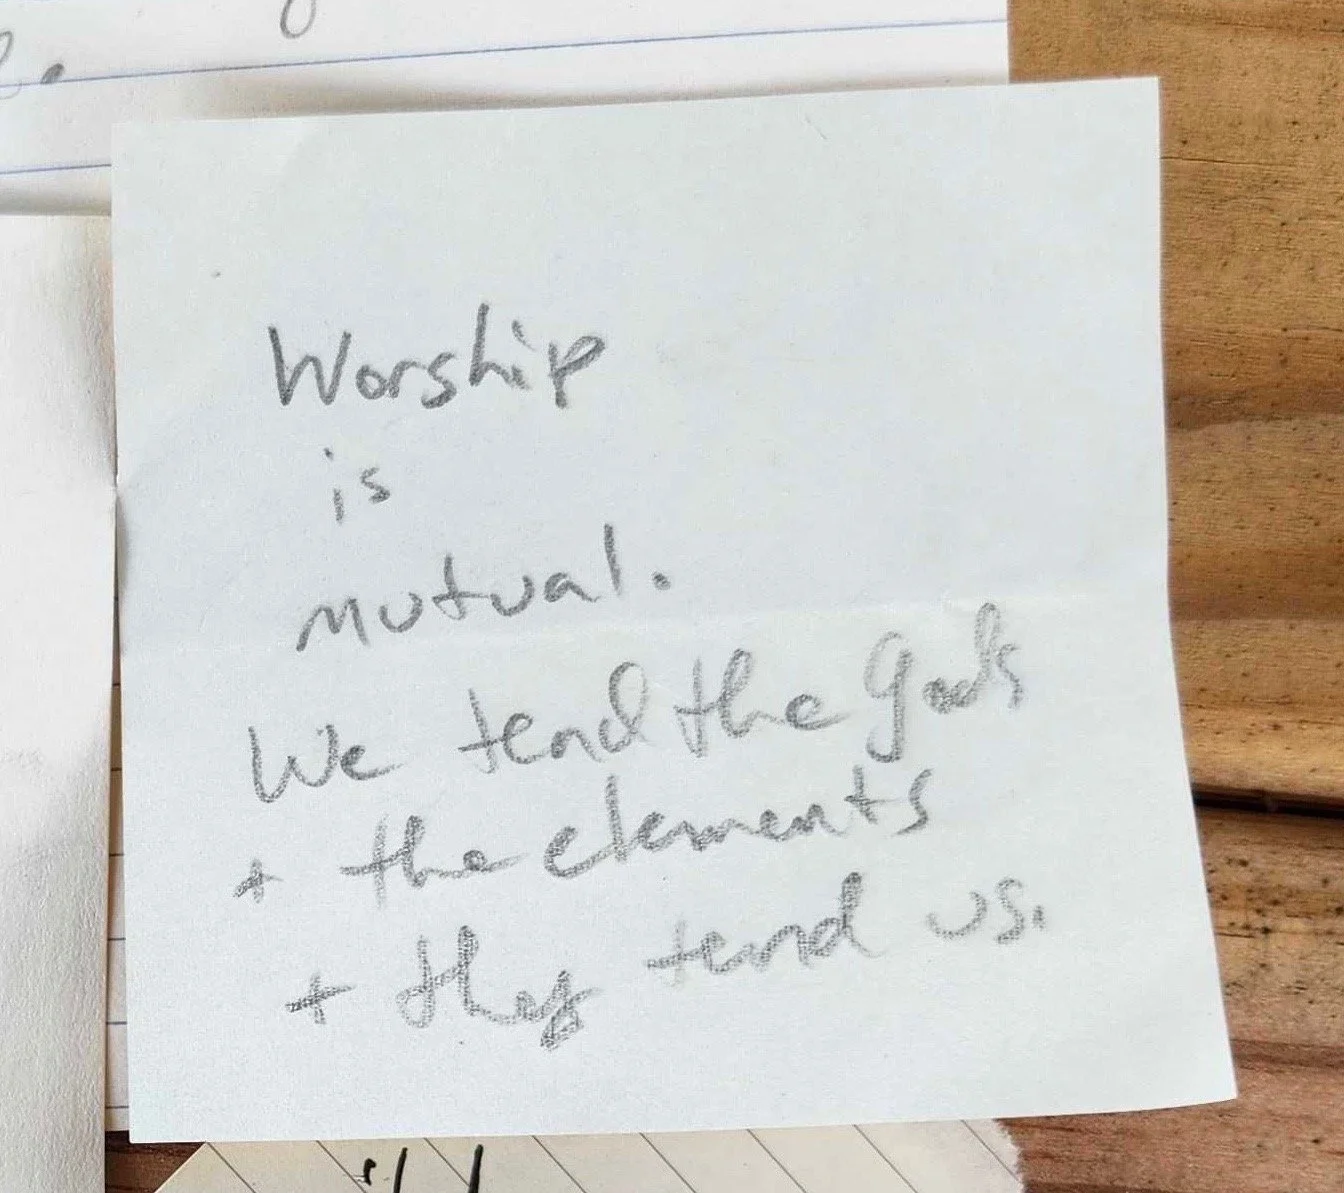 Worship
is
mutual.
We tend the gods
+ the elements
+ they tend us.